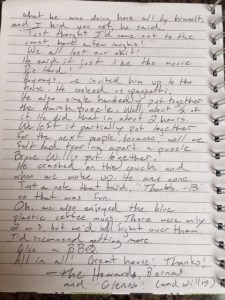 what he was doing here all by himself
and I kid you not he said,
"Just thought I'd come out to the
coast have a few laughs!
We all lost our shit!
He said it just like the movie
Die Hard!
Anyways, we invited him up to the
house. He cooked us spaghetti.
He also single handedly put together
the Earth puzzle. Well, about ¾ of
it. He did that in about 2 hours.
We left it partially put together
for the next people because, well we
felt bad tearing apart a puzzle
Bruce Willis put together.
He crashed on the couch and
when we woke up he was gone.
Just a note that said, "Thanks. -B
so that was fun.
Oh, we also enjoyed the blue
plastic coffee mugs. There were only
2 or 3, but we'd all fight over them.
I'd recommend getting more.
Also - BBQ
All in all, Great house! Thanks!
- The Howards, Bernas
and Glenns! (and Willis)